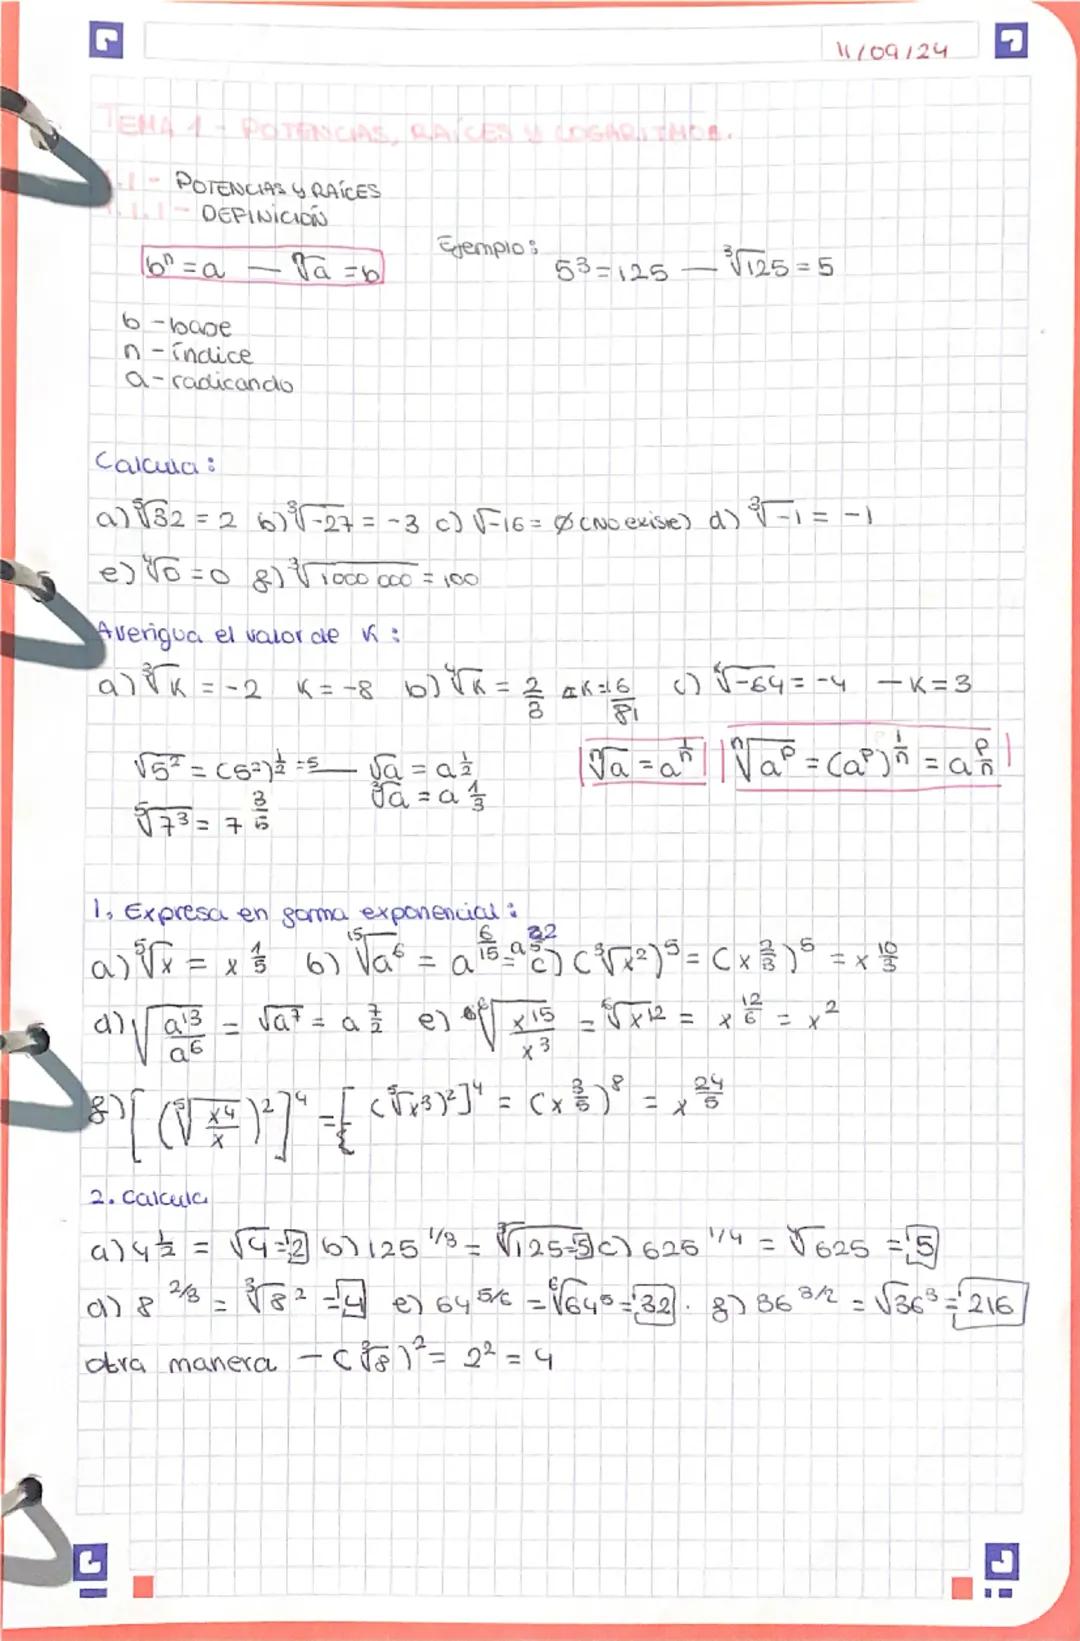 11/09/24
TEMA 1 - POTENCIAS, RAÍCES Y LOGARITMOS.
1.1 - POTENCIAS Y RAÍCES
1.1.1 - DEFINICIÓN
bⁿ = a — ⁿ√a = b Ejemplo: 5³ = 125 — ³√125 = 5
b - base
n - índice
a - radicando
Calcula:
a) ⁵√32 = 2 b) ³√-27 = -3 c) √-16 = Ø (No existe) d) ³√-1 = -1
e) ⁴√0 = 0 f) ³√1000 000 = 100
Averigua el valor de K:
a) ³√K = -2 K = -8 b) ⁴√K = 2/3 K = 16/81 c) ᴷ√-64 = -4 — K = 3
√5² = (5²)^1/2 = 5 — √a = a^1/2 ⁿ√a = a^1/n ⁿ√a^p = (a^p)^1/n = a^p/n
⁵√7³ = 7^3/5 ³√a = a^1/3
1. Expresa en forma exponencial:
a) ⁵√x = x^1/5 b) ¹⁵√a⁶ = a^6/15 = a^2/5 c) (³√x²)⁵ = (x^2/3)⁵ = x^10/3
d) √a¹³/a⁶ = √a⁷ = a^7/2 e) ⁶√x¹⁵/x³ = ⁶√x¹² = x^12/6 = x²
f) [(⁵√x⁴/x)²]⁴ = [(⁵√x³)²]⁴ = (x^3/5)⁸ = x^24/5
2. Calcula
a) 4^1/2 = √4 = 2 b) 125^1/3 = ³√125 = 5 c) 625^1/4 = ⁴√625 = 5
d) 8^2/3 = ³√8² = 4 e) 64^5/6 = ⁶√64⁵ = 32. f) 36^3/2 = √36³ = 216
otra manera - (³√8)² = 2² = 4